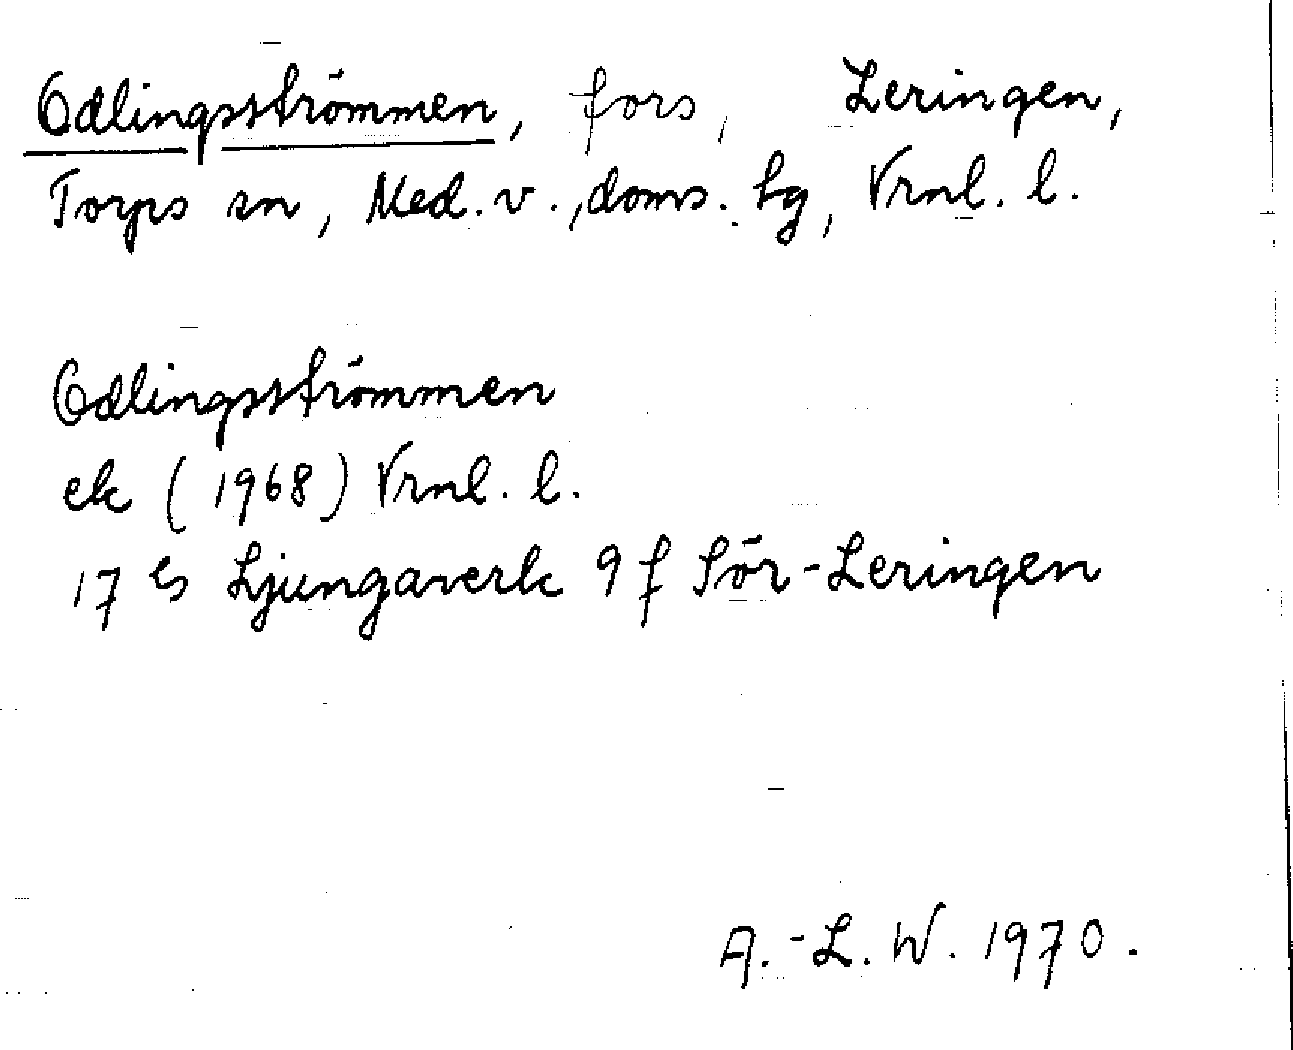 Odlingsströmmen, fors, Leringen,
Torps sn, Med. v., doms. lg, Vrnl. l.
Odlingsströmmen
ek (1968) Vrnl. l.
17 G Ljungaverk 9 f Sör-Leringen
A.-L. W. 1970.